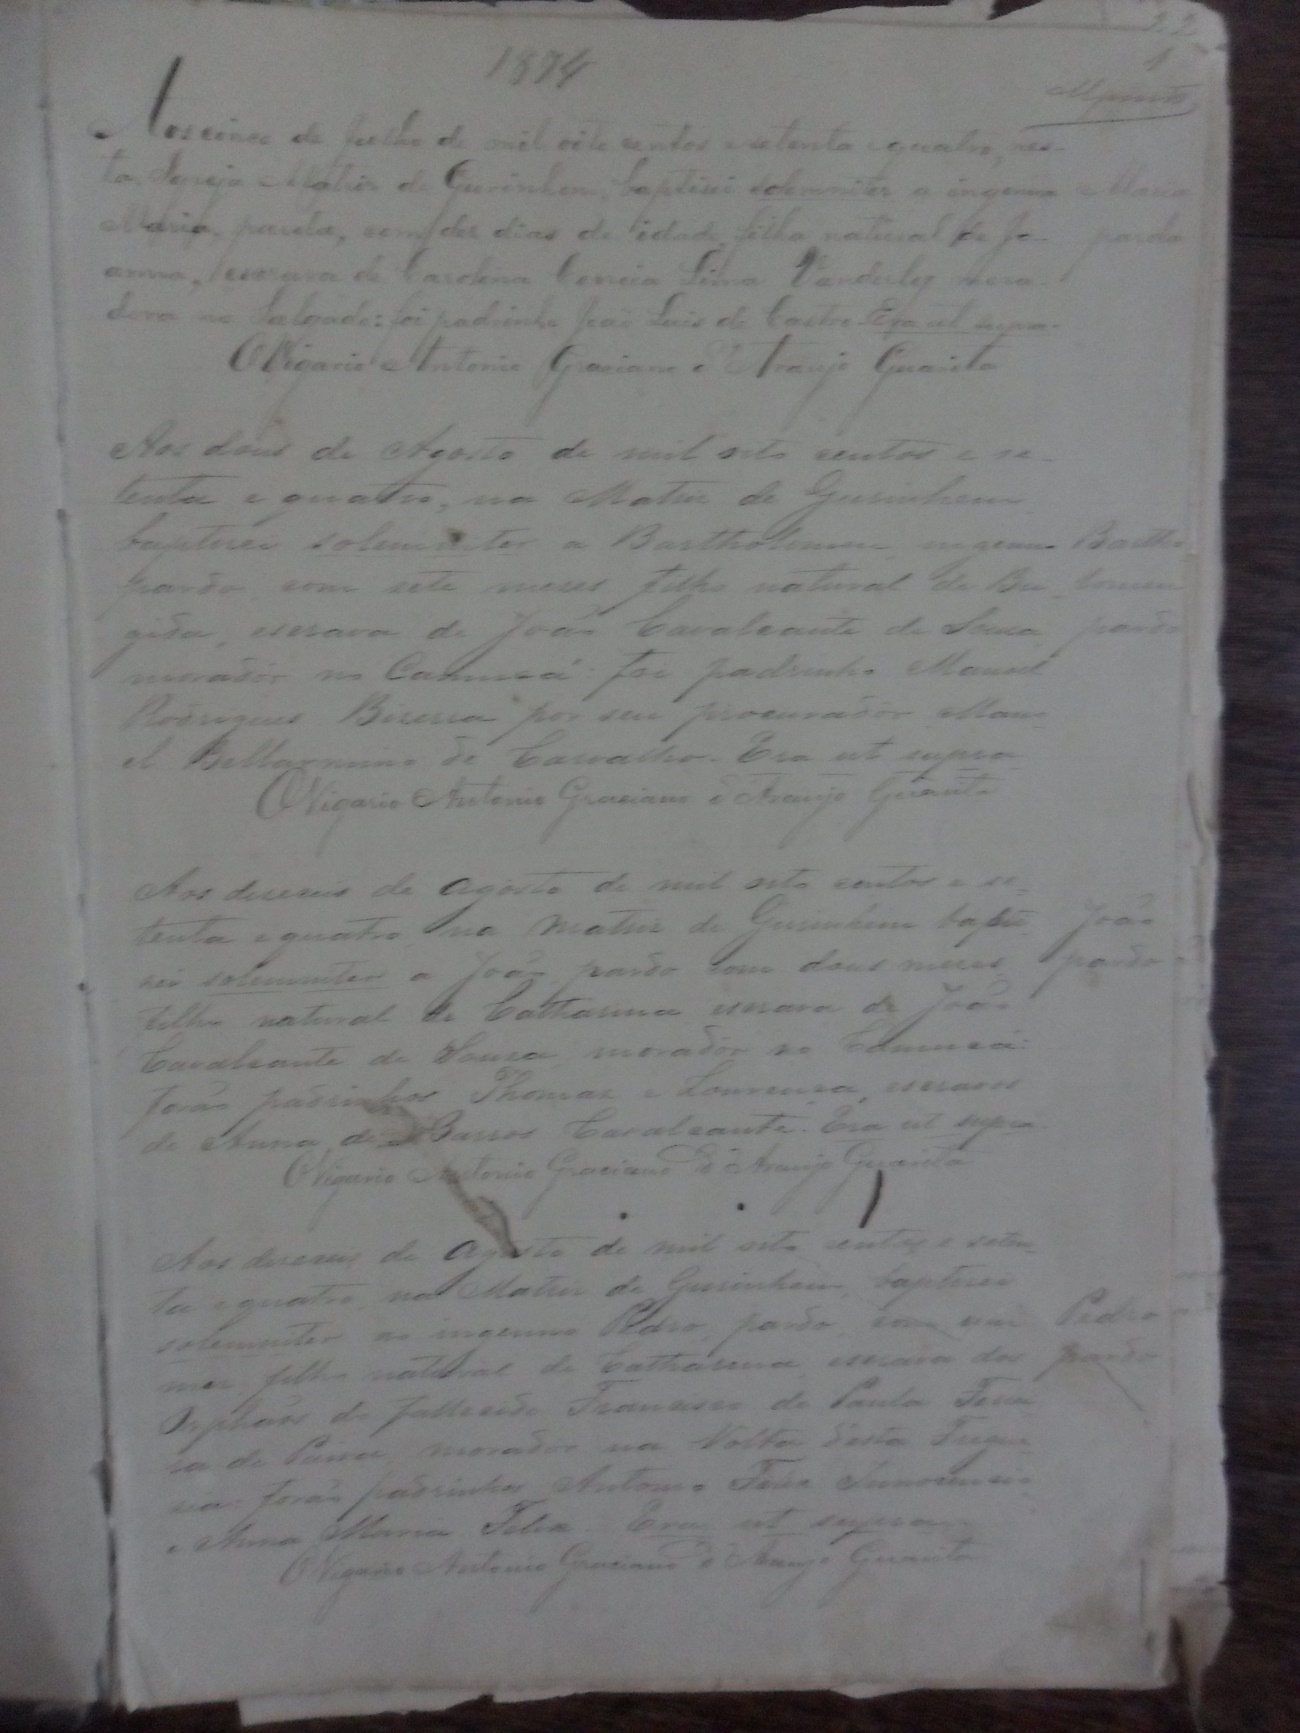 22
1
1874
Aos cinco de Julho de mil oito centos e setenta e quatro, nes-
ta Igreja Matriz de Gurinhem, baptisei solemniter a ingenua Maria
Maria, parda, com dez dias de idade, filha natural de Jo- parda
anna, escrava de Carolina Lima Vanderley mora-
dora no Salgado: foi padrinho João Luis de Castro. Era ut supra.
O Vigario Antonio Graciano d'Araujo Guarita
Aos dous de Agosto de mil oito centos e se-
tenta e quatro, na Matriz de Gurinhem
baptisei solemniter a Bartholomeu ingenuo Bartho
pardo com sete meses filho natural de Bri- lomeu
gida, escrava de João Cavalcante de Sousa pardo
morador no Camucá: foi padrinho Manoel
Rodrigues Biserra por seu procurador Mano-
el Bellarmino de Carvalho. Era ut supra
O Vigario Antonio Graciano d'Araujo Guarita
Aos deseseis de Agosto de mil oito centos e se-
tenta e quatro na Matriz de Gurinhem bapti- João
sei solemniter a João pardo com dous meses pardo
filho natural de Catharina escrava de João
Cavalcante de Sousa morador no Camucá:
forão padrinhos Thomaz e Lourença, escravos
de Anna de Barros Cavalcante. Era ut supra.
O Vigario Antonio Graciano d'Araujo Guarita
Aos deseseis de Agosto de mil oito centos e seten-
ta e quatro, na Matriz de Gurinhem, baptisei
solemniter ao ingenuo Pedro, pardo, com um Pedro
mez filho natural de Catharina escrava dos pardo
Orphãos do fallecido Francisco de Paula Ferrei-
ra de Paiva, morador na Volta desta Fregue-
sia: forão padrinhos Antonio Felix Innocencio
e Anna Maria Felix. Era ut supra
O Vigario Antonio Graciano d'Araujo Guarita